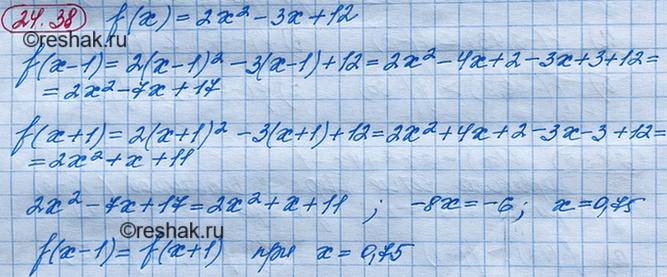 24.38 f(x) = 2x² - 3x + 12
©reshak.ru
f(x-1) = 2(x-1)² - 3(x-1) + 12 = 2x² - 4x + 2 - 3x + 3 + 12 =
= 2x² - 7x + 17
f(x+1) = 2(x+1)² - 3(x+1) + 12 = 2x² + 4x + 2 - 3x - 3 + 12 =
= 2x² + x + 11
2x² - 7x + 17 = 2x² + x + 11 ; -8x = -6 ; x = 0,75
f(x-1) = f(x+1) при x = 0,75
©reshak.ru